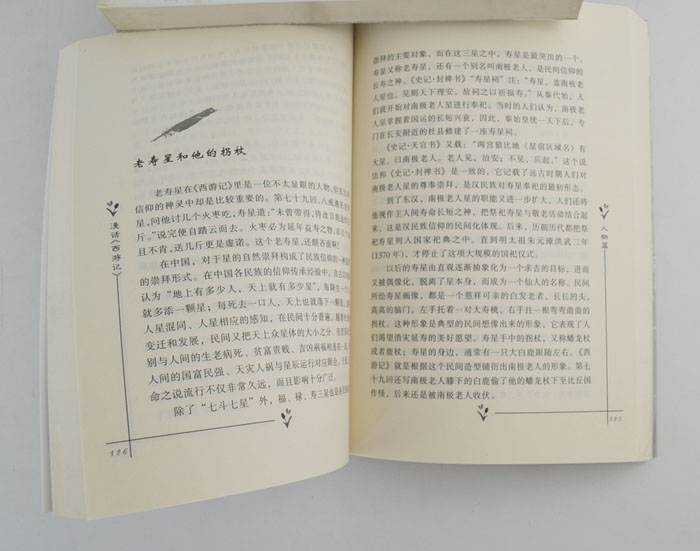 老寿星和他的拐杖
老寿星在《西游记》里是一位不太显眼的人物,但在民
信仰的神灵中却是比较重要的。第七十九回,八戒遇见老寿
星,问他讨几个火枣吃,寿星道:“未曾带得,待改日我送你几
斤。”说完便自踏云而去。火枣必为延年益寿之物,
且不肯,送几斤更是虚诺。这个老寿星,还颇吝啬啊!
在中国,对于星的自然崇拜构成了民族信仰的一种
的崇拜形式。在中国各民族的信仰传承经验中,
认为“地上有多少人,天上就有多少星”,每降生一个人
就多添一颗星;每死去一口人,天上也就落下一颗星。
人星混同、人星相应的感知,在民间十分普遍。随着
变迁和发展,民间又把天上众星体的大小之分、
别与人间的生老病死、贫富贵贱、吉凶祸福相连在一
人间的国富民强、天灾人祸与星辰运行对应附会。
命之说流行不仅非常久远,而且影响十分广泛。
除了“七斗七星”外,福、禄、寿三星也是
漫话《西游记》
186
崇拜的主要对象,而在这三星之中,寿星是最突出的一个。
寿星又称老寿星,还有一个别名叫南极老人,是民间信仰的
长寿之神。《史记·封禅书》“寿星祠”注:“寿星,盖南极老
人星也。见则天下理安,故祠之以祈福寿。”从秦代始,人
们就开始对南极老人星进行奉祀。当时的人们认为,南极老
人星掌握着国运的长短兴衰,因此,秦始皇统一天下后,专
门在长安附近的杜县修建了一座寿星祠。
《史记·天官书》又载:“两宫狼比地(星宿区域名)有
大星,曰南极老人。老人见,治安;不见,兵起。”这个说
法和《史记·封禅书》是一致的,它记载了远古时期人们对
南极老人星的尊奉崇拜,是汉民族对寿星奉祀的最初形态。
到了东汉,南极老人星的职能又进一步扩大,人们还将
他视作主人间寿命长短之神,把祭祀寿星与敬老活动结合起
来,这是寿星信仰的民间化体现。后来,历朝历代都把祭
祀寿星列入国家祀典之中。直到明太祖朱元璋洪武二年
(1370 年),才停止了这项大规模的国祀仪式。
以后的寿星由直观逐渐抽象化为一个求吉的目标,进而
又被偶像化,脱离了星本身,而成为一个仙人的名称。民间
所绘寿星画像,都是一个慈祥可亲的白发老者,长长的头,
高高的脑门,左手托着一对大寿桃,右手拄一根弯弯曲曲的
拐杖。这种形象是典型的民间想像出来的形象,它表现了人
们渴望消灾延寿的美好愿望。寿星手中的拐杖,又称蟠龙杖
或者鹿杖;寿星的身边,通常有一只大白鹿跟随左右。《西
游记》就是根据这个民间造型铺衍出南极老人的形象。第七
十九回还写南极老人膝下的白鹿偷了他的蟠龙杖下至比丘国
作怪,后来还是被南极老人收伏。
人物篇